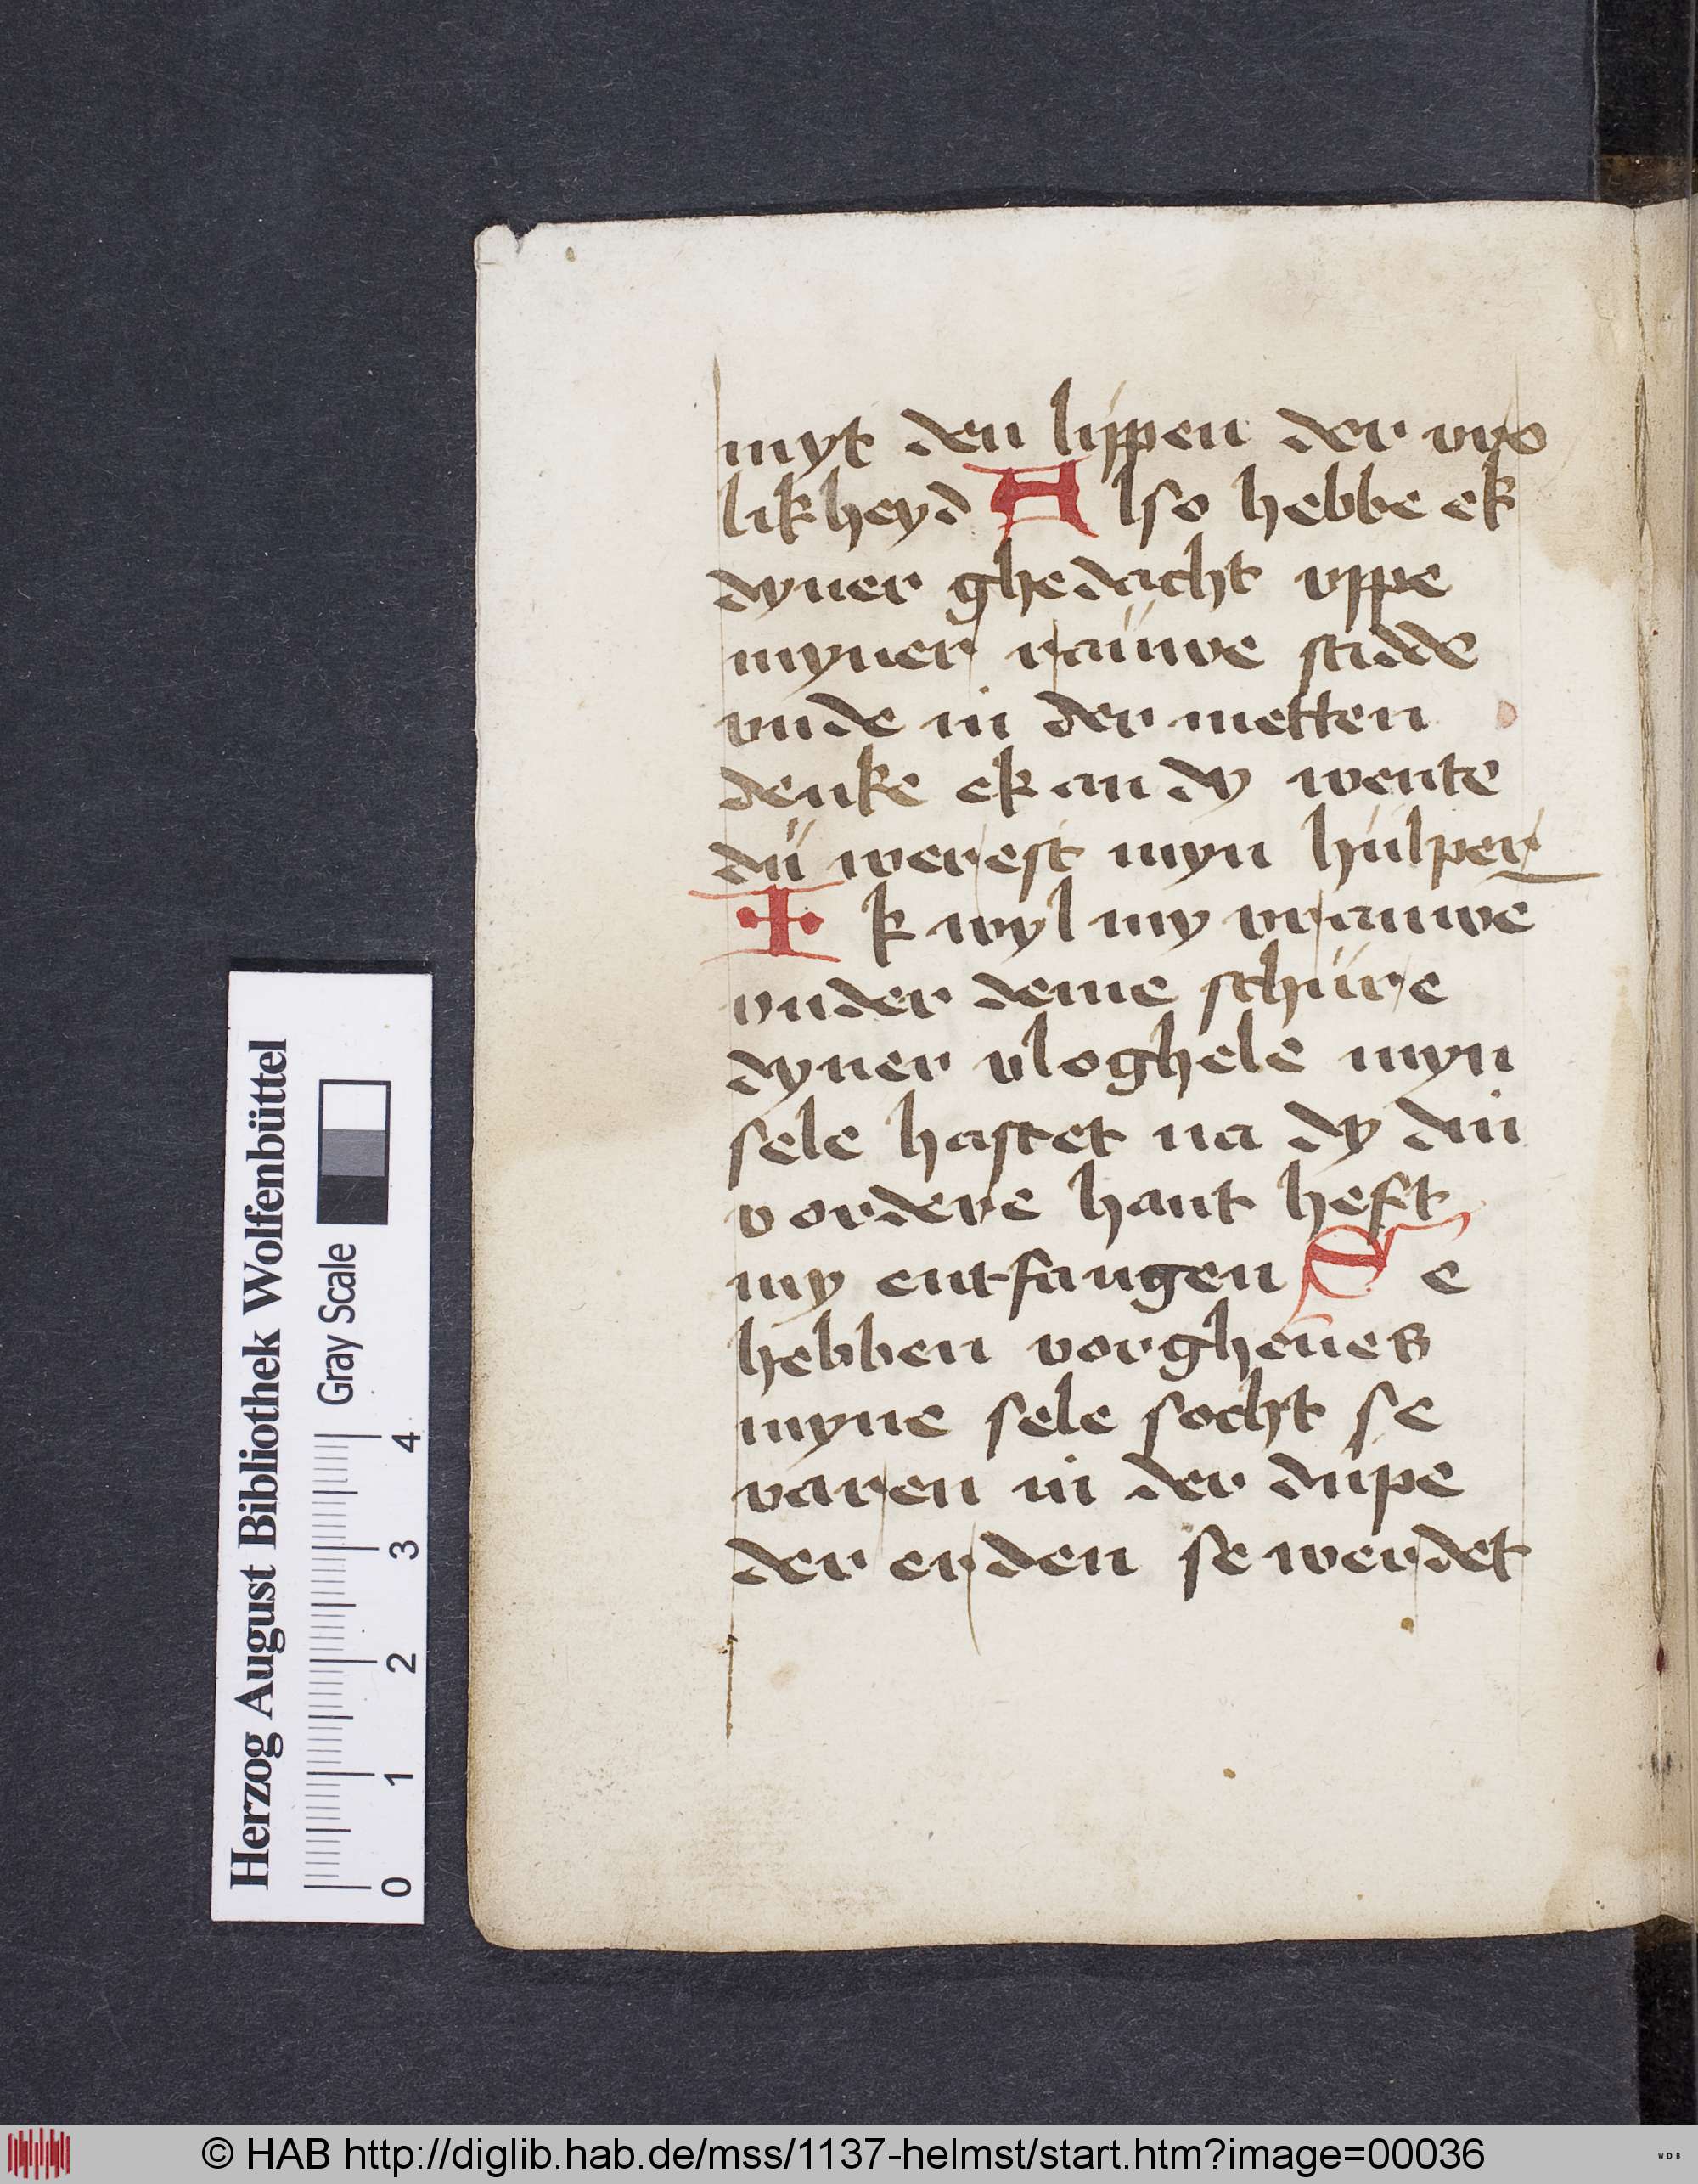 myt den lippen der vro
likheyd Also hebbe ek
dyner ghedacht vppe
myner rauwe stidde
vnde in der metten
denke ek an dy wente
du werest myn hulper
Ik wyl my vrauwe
vnder deme schure
dyner vloghele myn
sele hastet na dy din
vordere hant heft
my entfangen Se
hebben vorgheues
myne sele socht se
varen in der dupe
der erden se werdet
Herzog August Bibliothek Wolfenbüttel
Gray Scale
0 1 2 3 4
© HAB http://diglib.hab.de/mss/1137-helmst/start.htm?image=00036
WDB